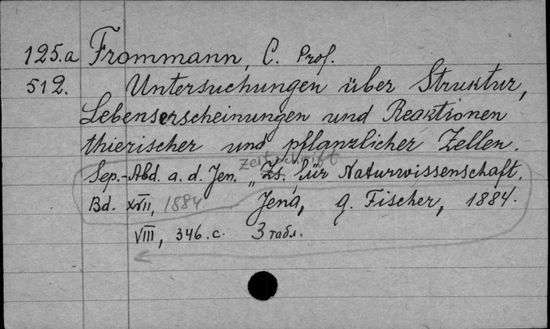 125.a Frommann, C. Prof.
512. Untersuchungen über Struktur,
Lebenserscheinungen und Reaktionen
thierischer und pflanzlicher Zellen.
zeitschrift
Sep.-Abd. a. d. Jen. „Zs. für Naturwissenschaft.
Bd. XVII, 1884 Jena, G. Fischer, 1884.
VIII, 346 c. 3 табл.